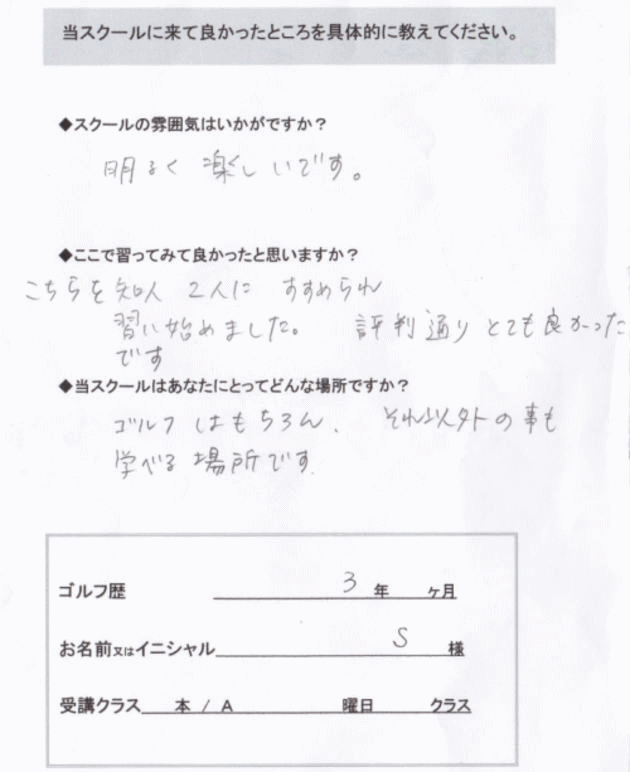 当スクールに来て良かったところを具体的に教えてください。
◆スクールの雰囲気はいかがですか？
明るく 楽しいです。
◆ここで習ってみて良かったと思いますか？
こちらを知人 2人に すすめられ
習い始めました。 評判通り とても良かった
です
◆当スクールはあなたにとってどんな場所ですか？
ゴルフはもちろん、 それ以外の事も
学べる場所です.
ゴルフ歴 3 年 ヶ月
お名前又はイニシャル S 様
受講クラス 本 / A 曜日 クラス